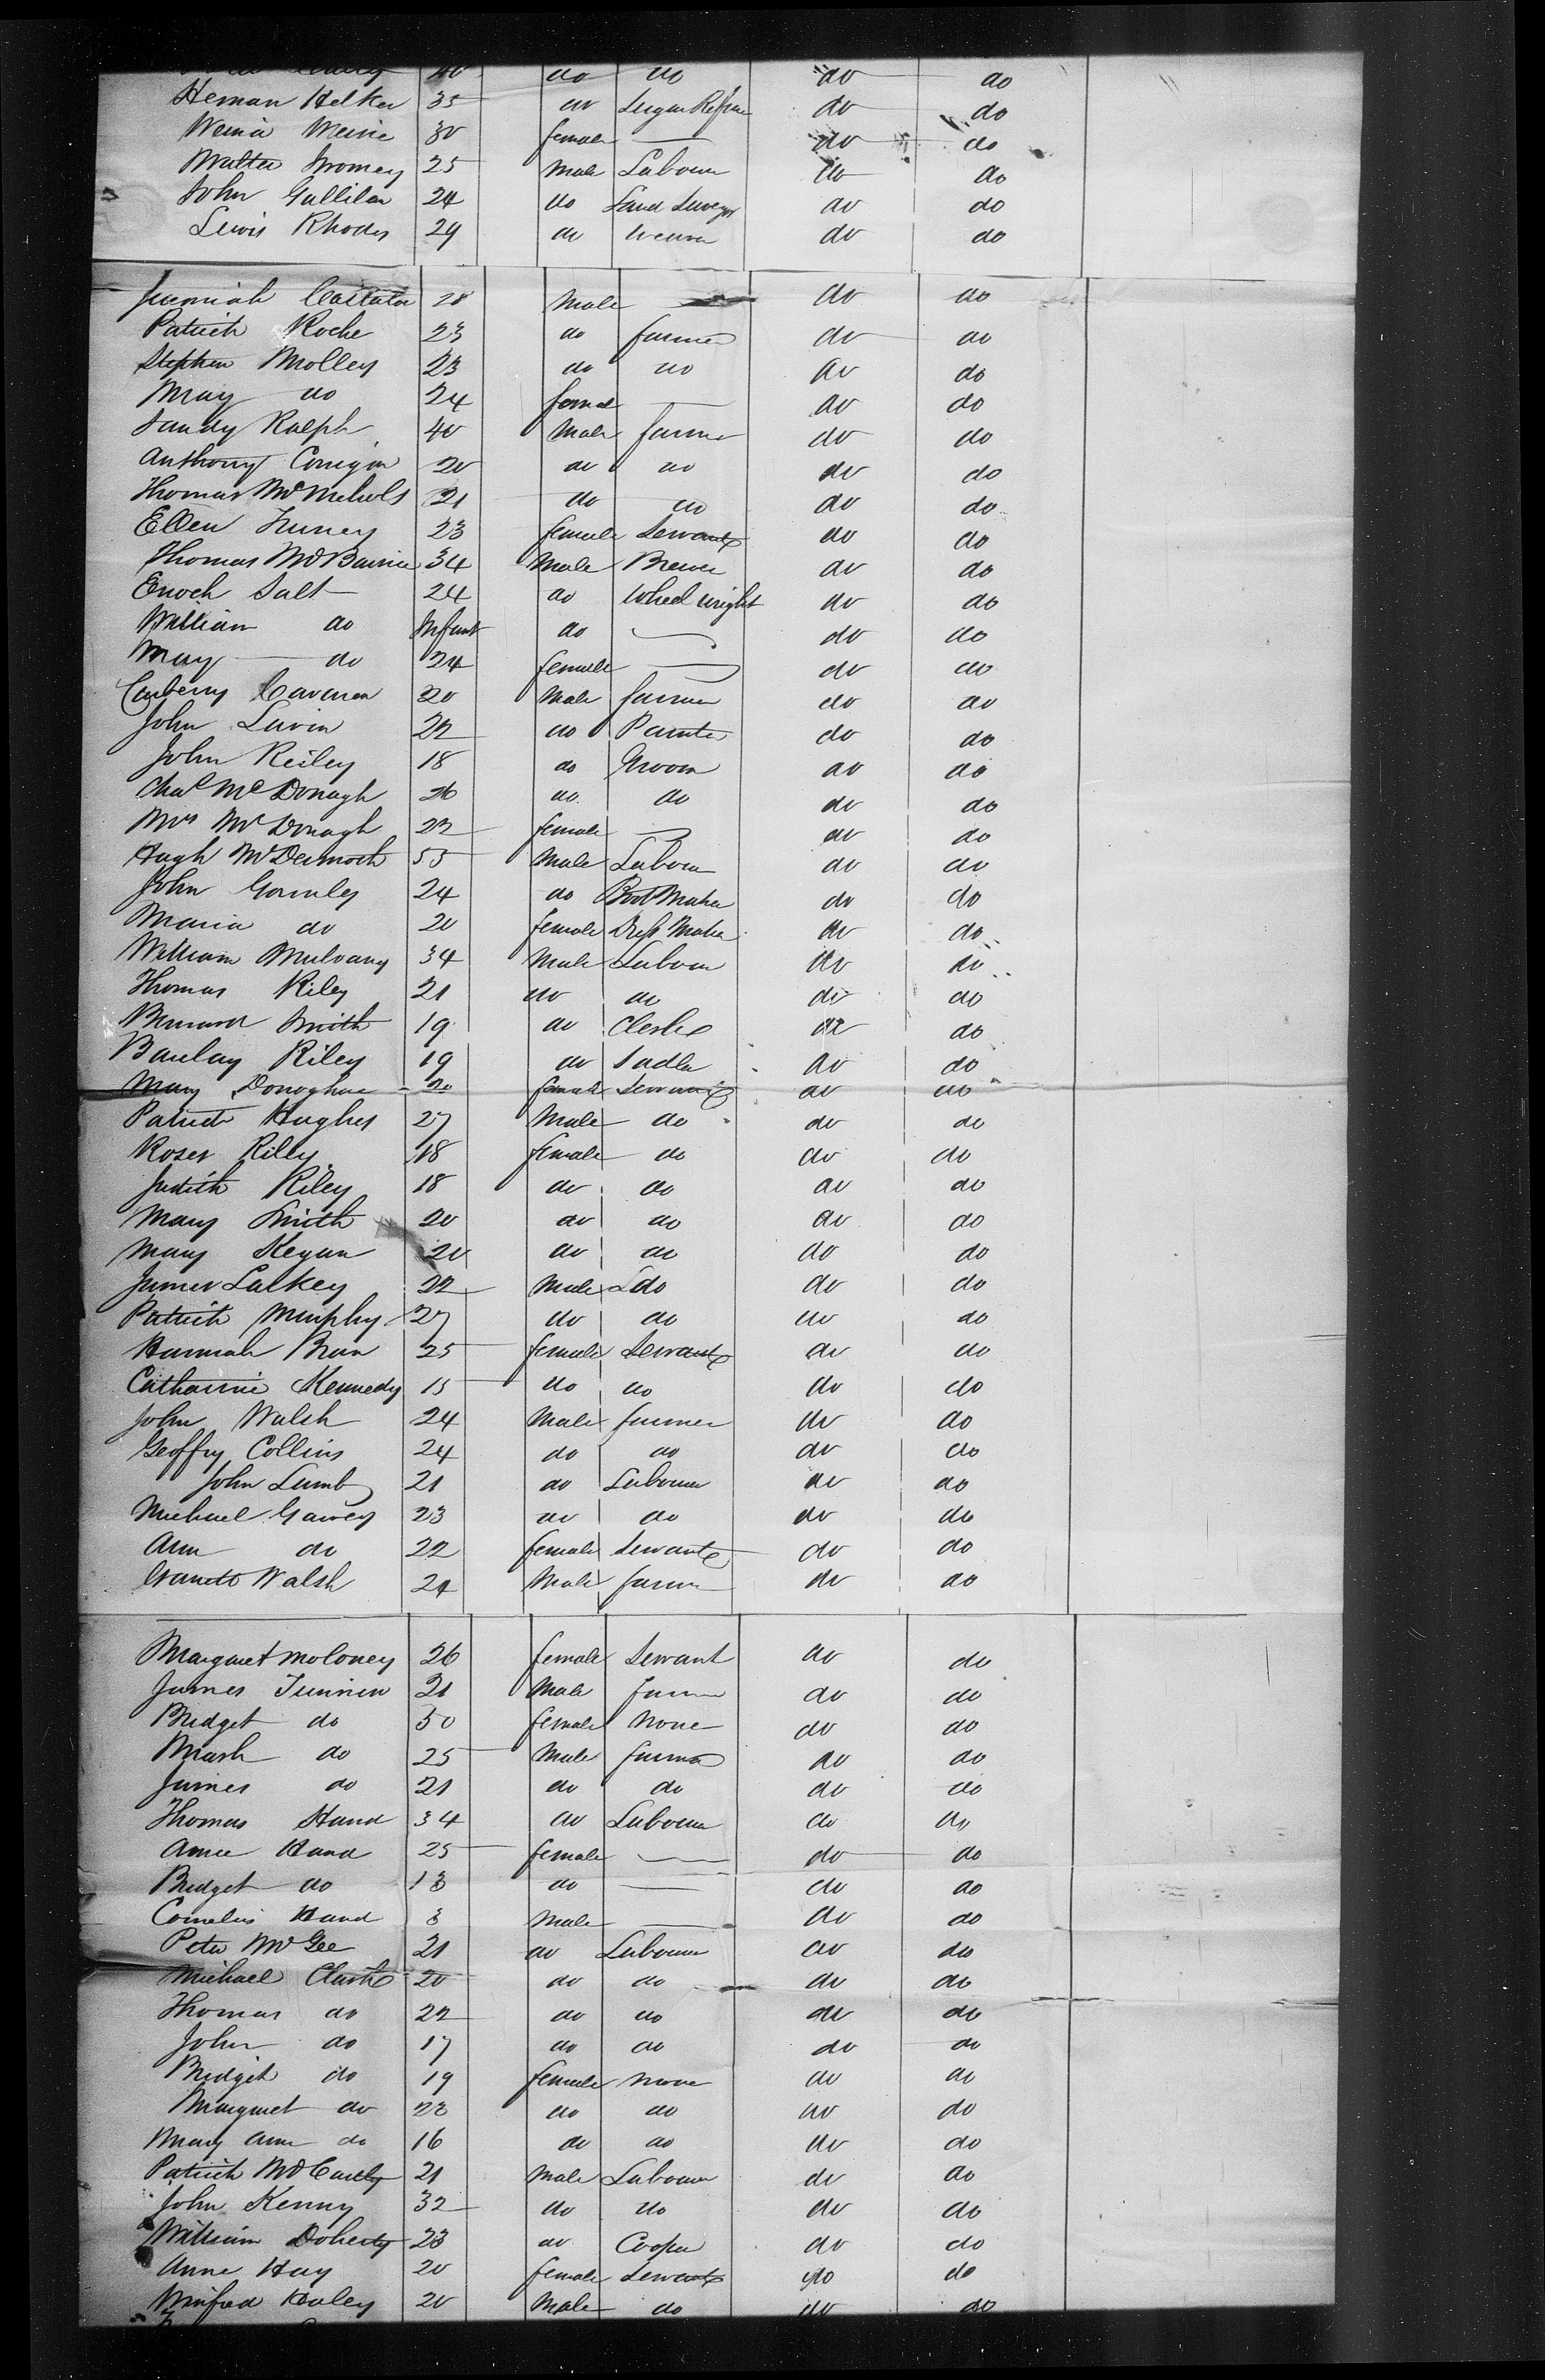 40 do do do do
Heman Helker 35 do Sugar Refiner do do
30 female — do do
Walter Twomey 25 Male Labourer do do
John 24 do Land Surveyor do do
Lewis Rhodes 29 do weaver do do
Jeremiah 28 Male — do do
Patrick Roche 23 do farmer do do
Stephen Molley 23 do do do do
Mary do 24 female — do do
Sandy Ralph 40 Male farmer do do
Anthony Corrigan 20 do do do do
Thomas McNichols 21 do do do do
Ellen 23 female Servant do do
Thomas 34 Male Brewer do do
Enoch Salt 24 do Wheel wright do do
William do Infant do — do do
Mary do 24 female — do do
Cavanan 20 Male farmer do do
John Lavin 22 do Painter do do
John Reiley 18 do Groom do do
Chas McDonagh 26 do do do do
Mrs McDonagh 22 female — do do
Hugh McDermoth 55 Male Labourer do do
John Gormley 24 do Boot Maker do do
Maria do 20 female Dress Maker do do
William Mulvany 34 Male Labourer do do
Thomas Riley 21 do do do do
Bernard Smith 19 do Clerke do do
Barclay Riley 19 do Sadler do do
Mary Donoghue 20 female Servant do do
Patrick Hughes 27 Male do do do
Roser Rilly 18 female do do do
Judith Riley 18 do do do do
Mary Smith 20 do do do do
Mary Kegan 20 do do do do
James Larkey 22 Male do do do
Patrick Murphy 27 do do do do
Hannah 25 female Servant do do
Catharine Kennedy 15 do do do do
John Walsh 24 Male farmer do do
Geoffry Collins 24 do do do do
John Lumb 21 do Labourer do do
Michael Garvey 23 do do do do
Ann do 22 female Servant do do
Garrett Walsh 24 Male farmer do do
Margaret Moloney 26 female Servant do do
James 21 Male farmer do do
Bridget do 50 female None do do
Mark do 25 Male farmer do do
James do 21 do do do do
Thomas Hand 34 do Labourer do do
Anne Hand 25 female — do do
Bridget do 13 do — do do
Cornelius Hand 3 Male — do do
Peter McGee 21 do Labourer do do
Michael Clarke 20 do do do do
Thomas do 22 do do do do
John do 17 do do do do
Bridget do 19 female none do do
Margaret do 23 do do do do
Mary Ann do 16 do do do do
Patrick 21 Male Labourer do do
John Kenny 32 do do do do
William Doherty 23 do Cooper do do
Anne Hay 20 female Servant do do
Winfred Haley 20 Male do do do